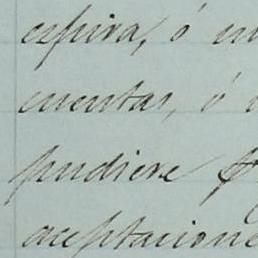 espira, ó
cuentas, ó
pudiere
aceptacione